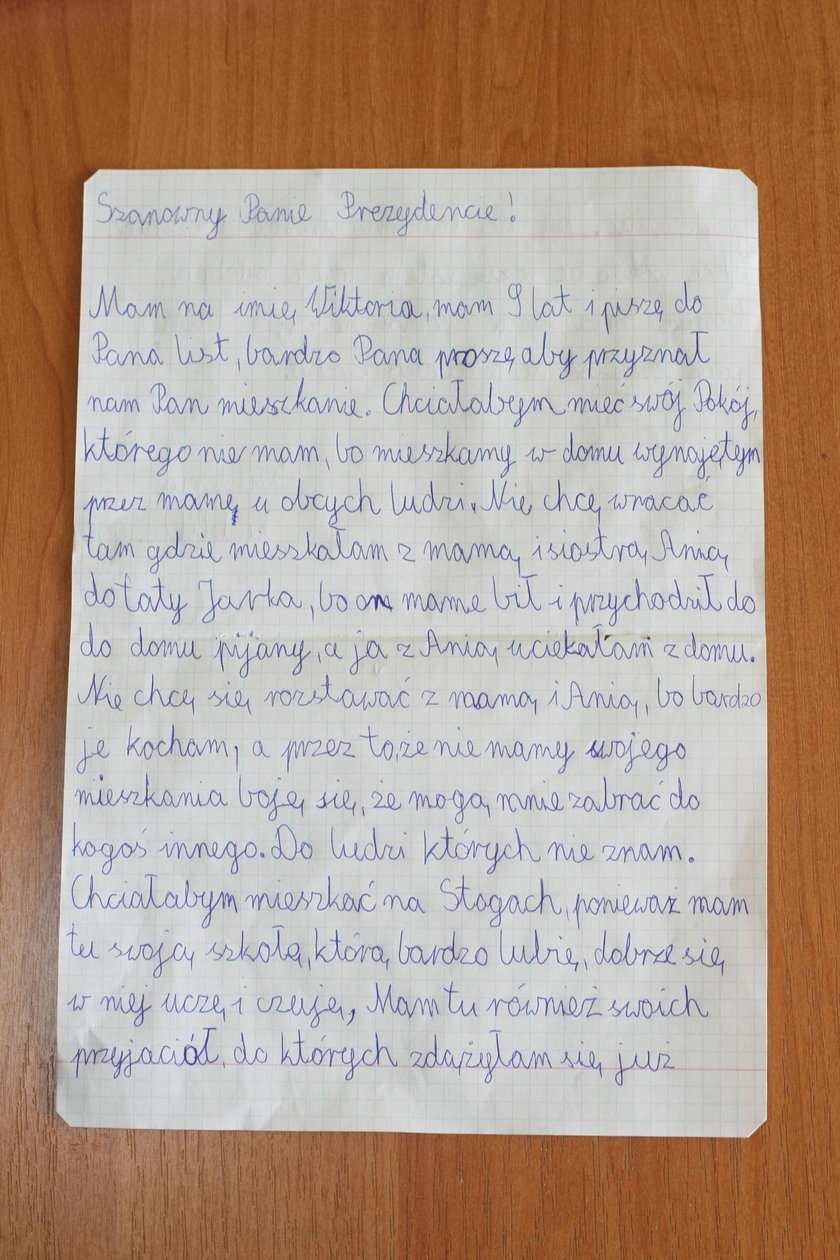 Szanowny Panie Prezydencie!
Mam na imię Wiktoria, mam 9 lat i piszę do
Pana list, bardzo Pana proszę, aby przyznał
nam Pan mieszkanie. Chciałabym mieć swój Pokój,
którego nie mam, bo mieszkamy w domu wynajętym
przez mamę u obcych ludzi. Nie chcę wracać
tam gdzie mieszkałam z mamą i siostrą Anią
do taty Jarka, bo on mame bił i przychodził do
do domu pijany, a ja z Anią uciekałam z domu.
Nie chcę się rozstawać z mamą i Anią, bo bardzo
je kocham, a przez to, że nie mamy swojego
mieszkania boję się, że mogą mnie zabrać do
kogoś innego. Do ludzi których nie znam.
Chciałabym mieszkać na Stogach, ponieważ mam
tu swoją szkołę, którą bardzo lubię, dobrze się
w niej uczę i czuję, Mam tu również swoich
przyjaciół, do których zdążyłam się już